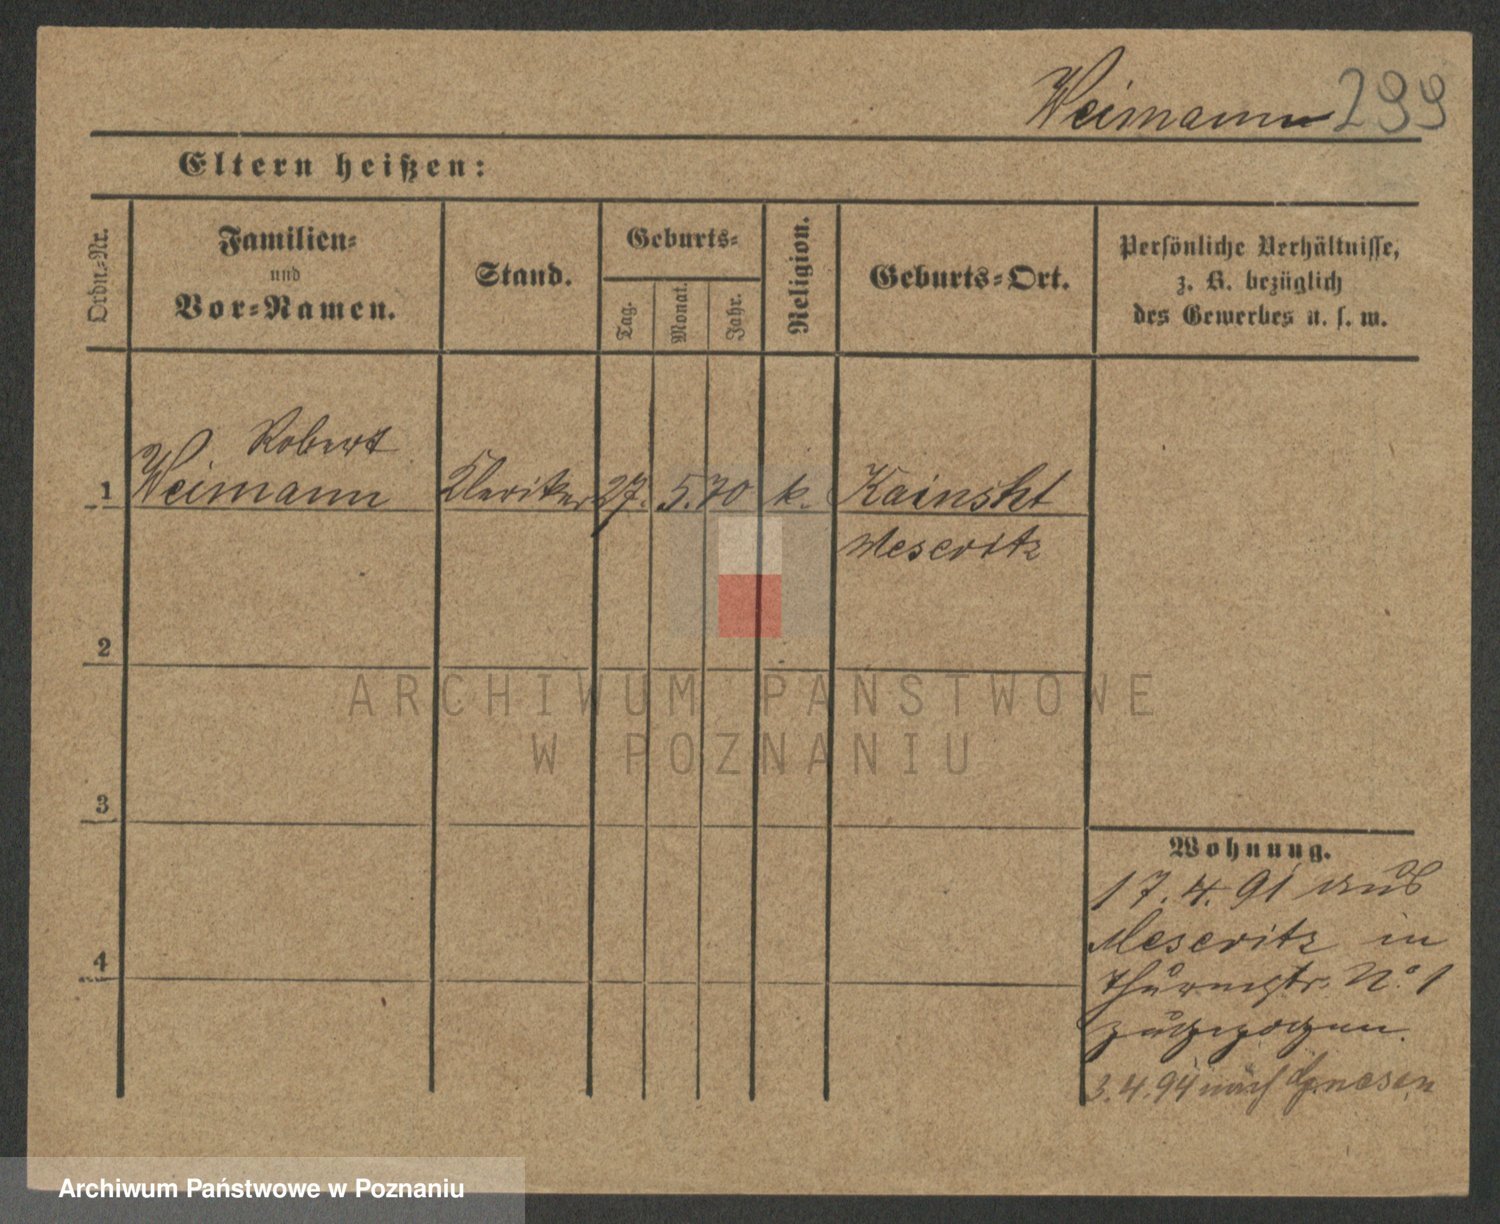 Weimann 299
Eltern heißen:
Ordn.-Nr.
Familien-
und
Vor-Namen.
Stand.
Geburts-
Tag.
Monat.
Jahr.
Religion.
Geburts-Ort.
Persönliche Verhältnisse,
z. B. bezüglich
des Gewerbes u. s. w.
Robert
1 Weimann Kleriker 27. 5. 70 k. Kainsht
Meseritz
2
3
4
Wohnung.
17. 4. 91 aus
Meseritz in
Thurmstr. No. 1
zugezogen.
3. 4. 94 nach Gnesen
ARCHIWUM PAŃSTWOWE
W POZNANIU
Archiwum Państwowe w Poznaniu